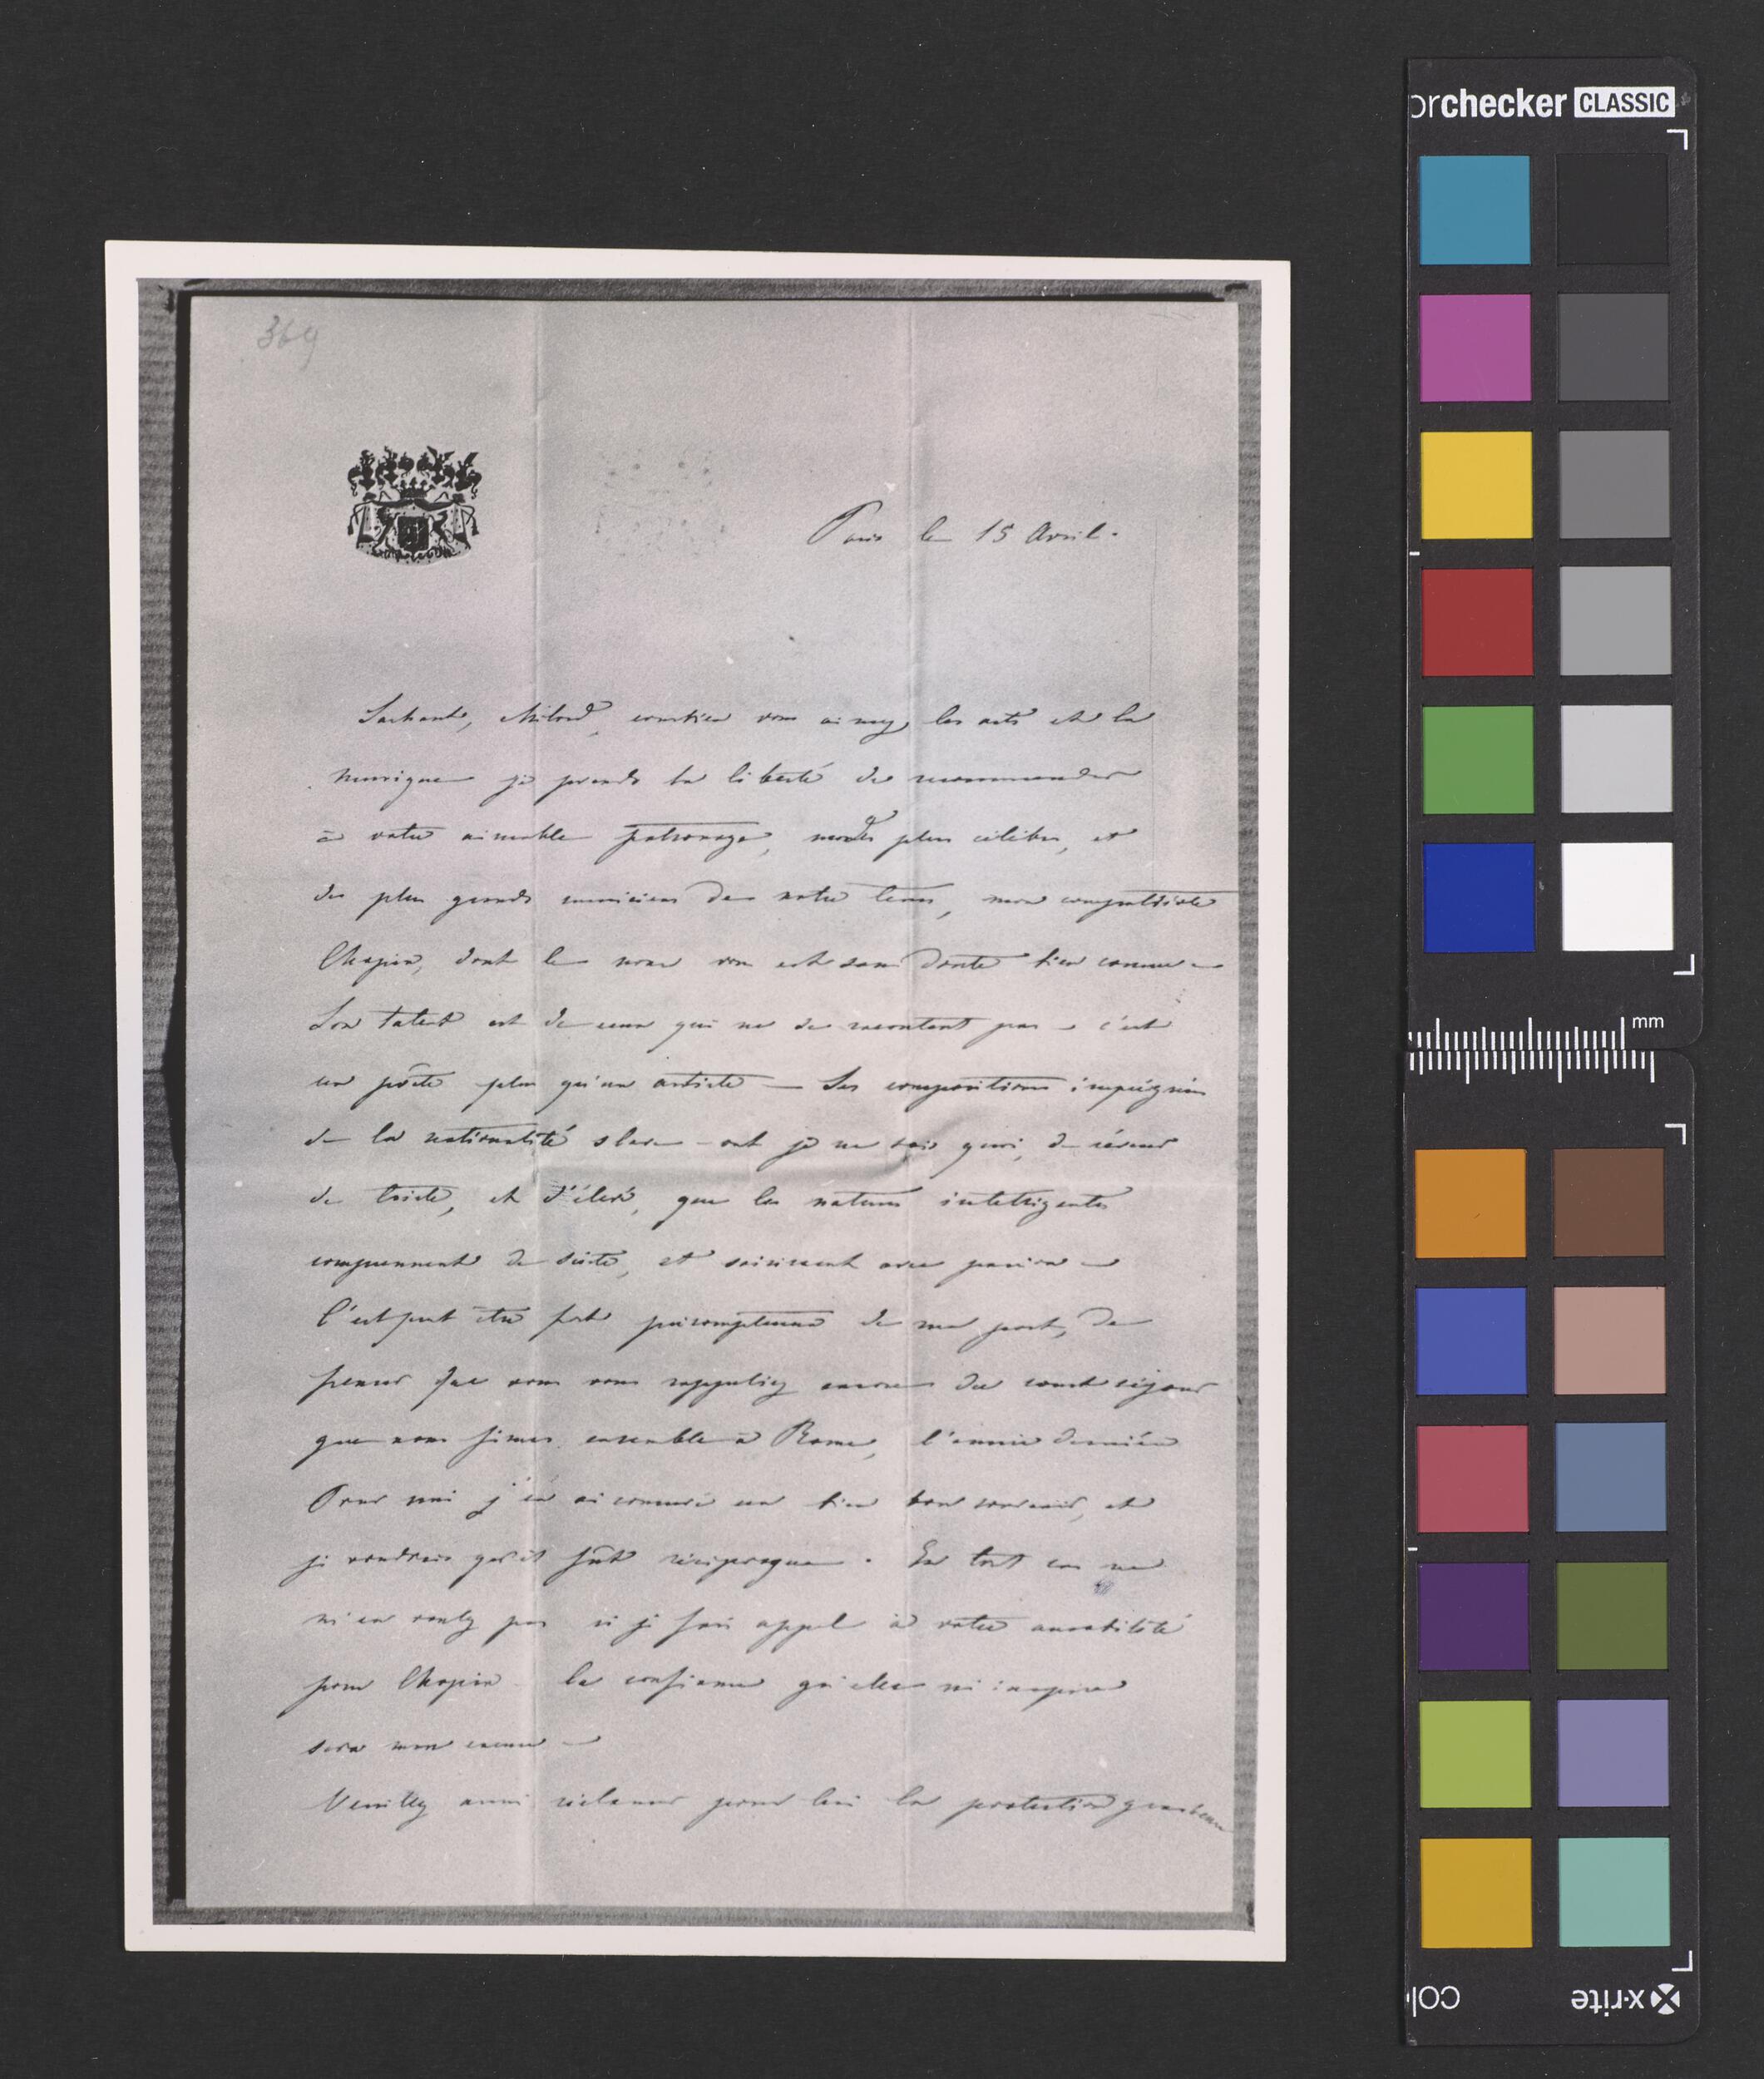 369
Paris le 15 Avril.
Sachant, Milord, combien vous aimez les arts et la
musique je prends la liberté de recommander
à votre aimable patronage, plus célèbre, et
des plus grands musiciens de notre tems, mon compatriote
Chopin, dont le nom vous est sans doute bien connu –
Son talent est de ceux qui ne se racontent pas – c'est
un poëte plus qu'un artiste — Ses compositions imprégnées
de la nationalité slave – ont je ne sais quoi, de rêveur
de triste, et d'élevé, que les natures intelligentes
comprennent de suite, et saisissent avec passion –
C'est peut être fort présomptueux de ma part, de
penser que vous vous rappeliez encore du court séjour
que nous fimes ensemble à Rome, l'année dernière
Pour moi j'en ai conservé un bien bon souvenir, et
je voudrais qu'il fût réciproque. En tout cas ne
m'en voulez pas si je fais appel à votre amabilité
pour Chopin la confiance qu'elle m'inspire
sera mon excuse –
Veuillez aussi réclamer pour lui la protection gracieuse
orchecker CLASSIC
mm
x-rite
col